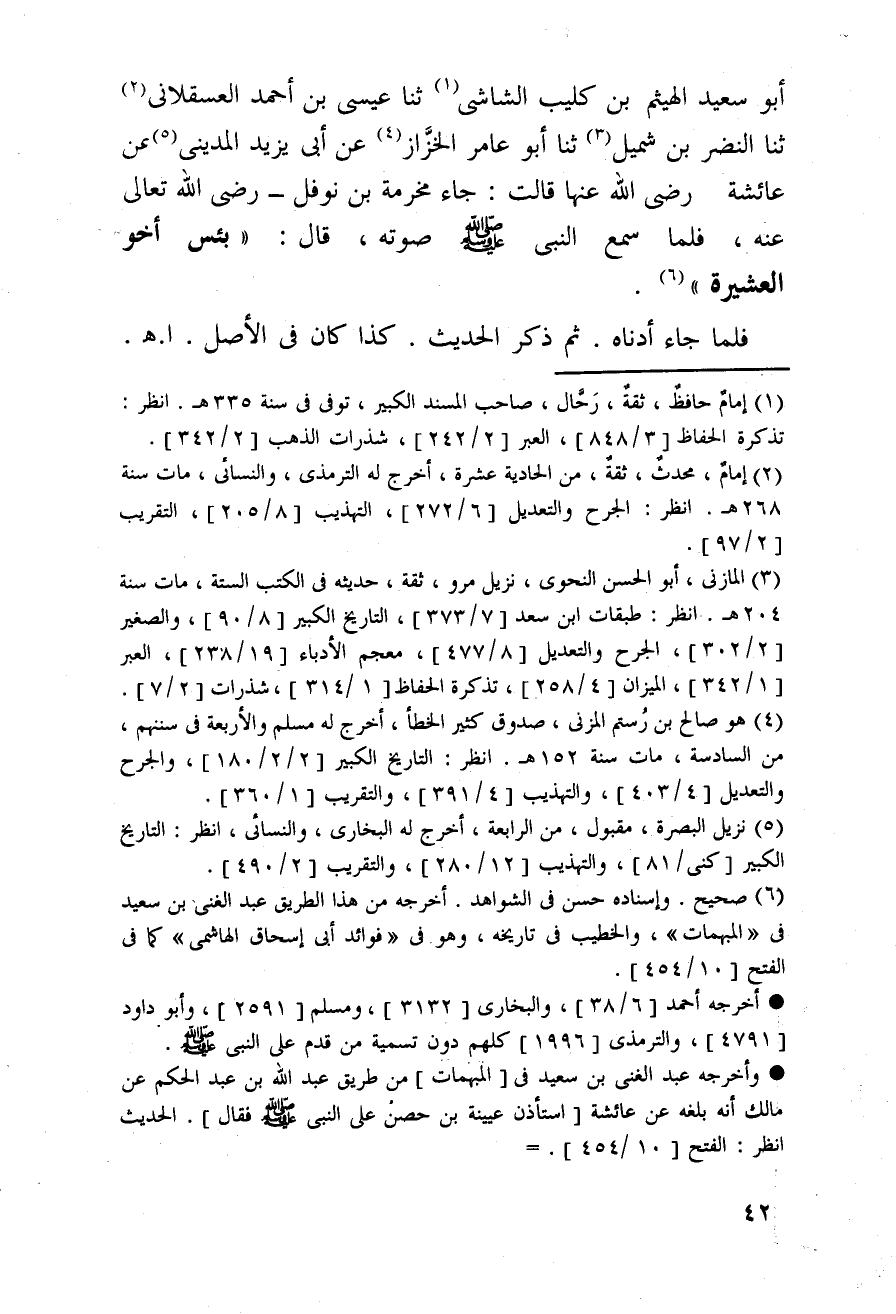 أبو سعيد الهيثم بن كليب الشاشى(١) ثنا عيسى بن أحمد العسقلانى(٢)
ثنا النضر بن شميل(٣) ثنا أبو عامر الخزَّاز(٤) عن أبى يزيد المدينى(٥)عن
عائشة رضى الله عنها قالت : جاء مخرمة بن نوفل – رضى الله تعالى
عنه ، فلما سمع النبى ﷺ صوته ، قال : « بئس أخو
العشيرة »(٦) .
فلما جاء أدناه . ثم ذكر الحديث . كذا كان فى الأصل . ا.هـ .
(١) إمامٌ حافظٌ ، ثقةٌ ، رَحَّال ، صاحب المسند الكبير ، توفى فى سنة ٣٣٥هـ . انظر :
تذكرة الحفاظ [ ٨٤٨/٣ ] ، العبر [ ٢٤٢/٢ ] ، شذرات الذهب [ ٣٤٢/٢ ] .
(٢) إمامٌ ، محدثٌ ، ثقةٌ ، من الحادية عشرة ، أخرج له الترمذى ، والنسائى ، مات سنة
٢٦٨هـ . انظر : الجرح والتعديل [ ٢٧٢/٦ ] ، التهذيب [ ٢٠٥/٨ ] ، التقريب
[ ٩٧/٢ ] .
(٣) المازنى ، أبو الحسن النحوى ، نزيل مرو ، ثقة ، حديثه فى الكتب الستة ، مات سنة
٢٠٤هـ . انظر : طبقات ابن سعد [ ٣٧٣/٧ ] ، التاريخ الكبير [ ٩٠/٨ ] ، والصغير
[ ٣٠٢/٢ ] ، الجرح والتعديل [ ٤٧٧/٨ ] ، معجم الأدباء [ ٢٣٨/١٩ ] ، العبر
[ ٣٤٢/١ ] ، الميزان [ ٢٥٨/٤ ] ، تذكرة الحفاظ [ ٣١٤/١ ] ، شذرات [ ٧/٢ ] .
(٤) هو صالح بن رُستم المزنى ، صدوق كثير الخطأ ، أخرج له مسلم والأربعة فى سننهم ،
من السادسة ، مات سنة ١٥٢هـ . انظر : التاريخ الكبير [ ١٨٠/٢/٢ ] ، والجرح
والتعديل [ ٤٠٣/٤ ] ، والتهذيب [ ٣٩١/٤ ] ، والتقريب [ ٣٦٠/١ ] .
(٥) نزيل البصرة ، مقبول ، من الرابعة ، أخرج له البخارى ، والنسائى ، انظر : التاريخ
الكبير [ كنى/٨١ ] ، والتهذيب [ ٢٨٠/١٢ ] ، والتقريب [ ٤٩٠/٢ ] .
(٦) صحيح . وإسناده حسن فى الشواهد . أخرجه من هذا الطريق عبد الغنى بن سعيد
فى «المبهمات» ، والخطيب فى تاريخه ، وهو فى «فوائد أبى إسحاق الهاشمى» كما فى
الفتح [ ٤٥٤/١٠ ] .
● أخرجه أحمد [ ٣٨/٦ ] ، والبخارى [ ٣١٣٢ ] ، ومسلم [ ٢٥٩١ ] ، وأبو داود
[ ٤٧٩١ ] ، والترمذى [ ١٩٩٦ ] كلهم دون تسمية من قدم على النبى ﷺ .
● وأخرجه عبد الغنى بن سعيد فى [ المبهمات ] من طريق عبد الله بن عبد الحكم عن
مالك أنه بلغه عن عائشة [ استأذن عيينة بن حصن على النبى ﷺ فقال ] . الحديث
انظر : الفتح [ ٤٥٤/١٠ ] . =
٤٢